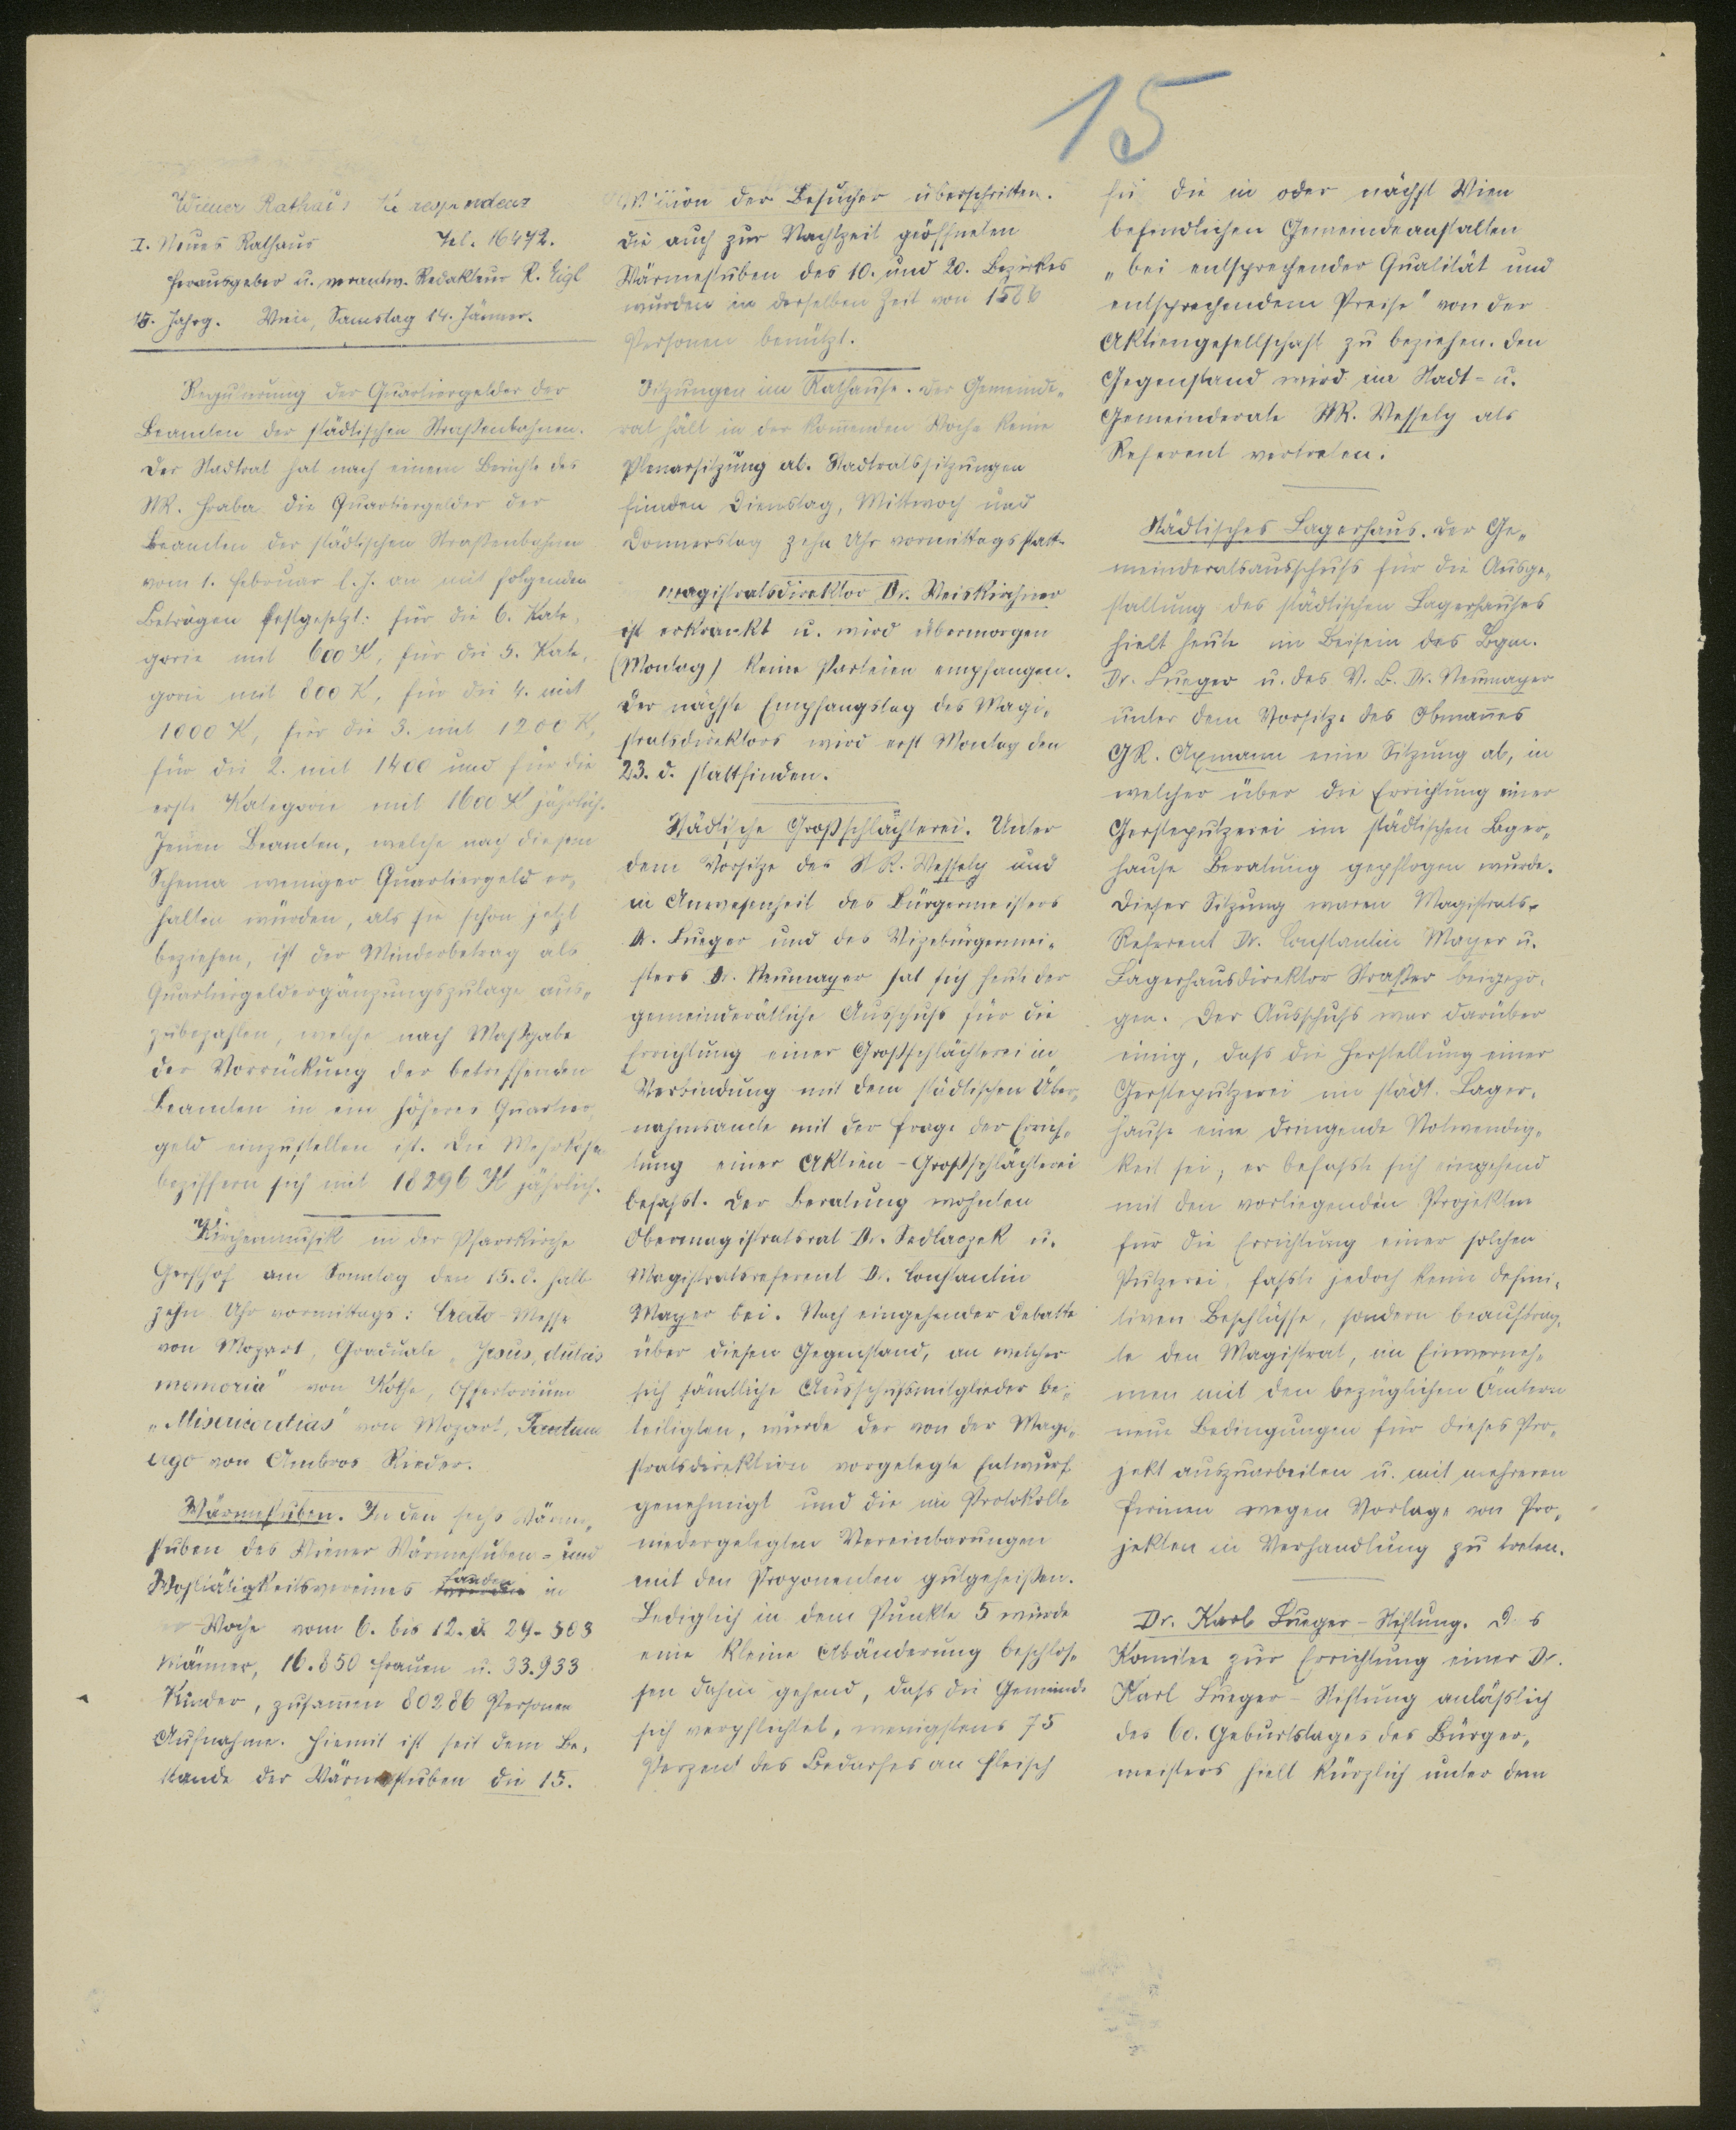 15
Wiener Rathaus Korrespondenz
I. Neues Rathaus Tel. 16472.
Herausgeber u. verantw. Redakteur R. Eigl
15. Jahrg. Wien, Samstag 14. Jänner.
Regulierung der Quartiergelder der
Beamten der städtischen Straßenbahnen.
Der Stadtrat hat nach einem Berichte des
StR. Hraba die Quartiergelder der
Beamten der städtischen Straßenbahnen
vom 1. Februar l. J. an mit folgenden
Beträgen festgesetzt: für die 6. Kate-
gorie mit 600 K, für die 5. Kate-
gorie mit 800 K, für die 4. mit
1000 K, für die 3. mit 1200 K,
für die 2. mit 1400 und für die
erste Kategorie mit 1600 K jährlich.
Jenen Beamten, welche nach diesem
Schema weniger Quartiergeld er-
halten würden, als sie schon jetzt
beziehen, ist der Minderbetrag als
Quartiergeldergänzungszulage aus-
zubezahlen, welche nach Maßgabe
der Vorrückung der betreffenden
Beamten in ein höheres Quartier-
geld einzustellen ist. Die Mehrkosten
beziffern sich mit 18296 K jährlich.
Kirchenmusik in der Pfarrkirche
Gersthof am Sonntag den 15. d. halb
zehn Uhr vormittags: Credo-Messe
von Mozart, Graduale „Jesus, dulcis
memoria" von Kothe, Offertorium
„Misericordias" von Mozart, Tantum
ergo von Ambros Rieder.
Wärmestuben. In den sechs Wärme-
stuben des Wiener Wärmestuben- und
Wohltätigkeitsvereines fanden in
der Woche vom 6. bis 12. d. 29.503
Männer, 16.850 Frauen u. 33.933
Kinder, zusamen 80286 Personen
Aufnahme. Hiemit ist seit dem Be-
stande der Wärmestuben die 15.
Million der Besucher überschritten.
Die auch zur Nachtzeit geöffneten
Wärmestuben des 10. und 20. Bezirkes
wurden in derselben Zeit von 1586
Personen benützt.
Sitzungen im Rathause. Der Gemeinde-
rat hält in der komenden Woche keine
Plenarsitzung ab. Stadtratssitzungen
finden Dienstag, Mittwoch und
Donnerstag zehn Uhr vormittags statt.
Magistratsdirektor Dr. Weiskirchner
ist erkrankt u. wird übermorgen
(Montag) keine Parteien empfangen.
Der nächste Empfangstag des Magi-
stratsdirektors wird erst Montag den
23. d. stattfinden.
Städtische Großschlächterei. Unter
dem Vorsitze des StR. Wessely und
in Anwesenheit des Bürgermeisters
Dr. Lueger und des Vizebürgermei-
sters Dr. Neumayer hat sich heute der
gemeinderätliche Ausschuß für die
Errichtung einer Großschlächterei in
Verbindung mit dem städtischen Über-
nahmsamte mit der Frage der Errich-
tung einer Aktien-Großschlächterei
befaßt. Der Beratung wohnten
Obermagistratsrat Dr. Sedlaczek u.
Magistratsreferent Dr. Constantin
Mayer bei. Nach eingehender Debatte
über diesen Gegenstand, an welcher
sich sämtliche Ausschußmitglieder be-
teiligten, wurde der von der Magi-
stratsdirektion vorgelegte Entwurf
genehmigt und die im Protokolle
niedergelegten Vereinbarungen
mit den Proponenten gutgeheißen.
Lediglich in dem Punkte 5 wurde
eine kleine Abänderung beschlos-
sen dahin gehend, daß die Gemeinde
sich verpflichtet, wenigstens 75
Perzent des Bedarfes an Fleisch
für die in oder nächst Wien
befindlichen Gemeindeanstalten
„bei entsprechender Qualität und
entsprechendem Preise" von der
Aktiengesellschaft zu beziehen. Den
Gegenstand wird im Stadt- u.
Gemeinderate StR. Wessely als
Referent vertreten.
Städtisches Lagerhaus. Der Ge-
meinderatsausschuß für die Ausge-
staltung des städtischen Lagerhauses
hielt heute im Beisein des Bgm.
Dr. Lueger u. des V. B. Dr. Neumayer
unter dem Vorsitze des Obmanes
GR. Axmann eine Sitzung ab, in
welcher über die Errichtung einer
Gersteputzerei im städtischen Lager-
hause Beratung gepflogen wurde.
Dieser Sitzung waren Magistrats-
Referent Dr. Constantin Mayer u.
Lagerhausdirektor Straßer beigezo-
gen. Der Ausschuß war darüber
einig, daß die Herstellung einer
Gersteputzerei im städt. Lager-
hause eine dringende Notwendig-
keit sei; er befaßte sich eingehend
mit den vorliegenden Projekten
für die Errichtung einer solchen
Putzerei, faßte jedoch keine defini-
tiven Beschlüsse, sondern beauftrag-
te den Magistrat, im Einverneh-
men mit den bezüglichen Ämtern
neue Bedingungen für dieses Pro-
jekt auszuarbeiten u. mit mehreren
Firmen wegen Vorlage von Pro-
jekten in Verhandlung zu treten.
Dr. Karl Lueger-Stiftung. Das
Komitee zur Errichtung einer Dr.
Karl Lueger-Stiftung anläßlich
des 60. Geburtstages des Bürger-
meisters hielt kürzlich unter dem